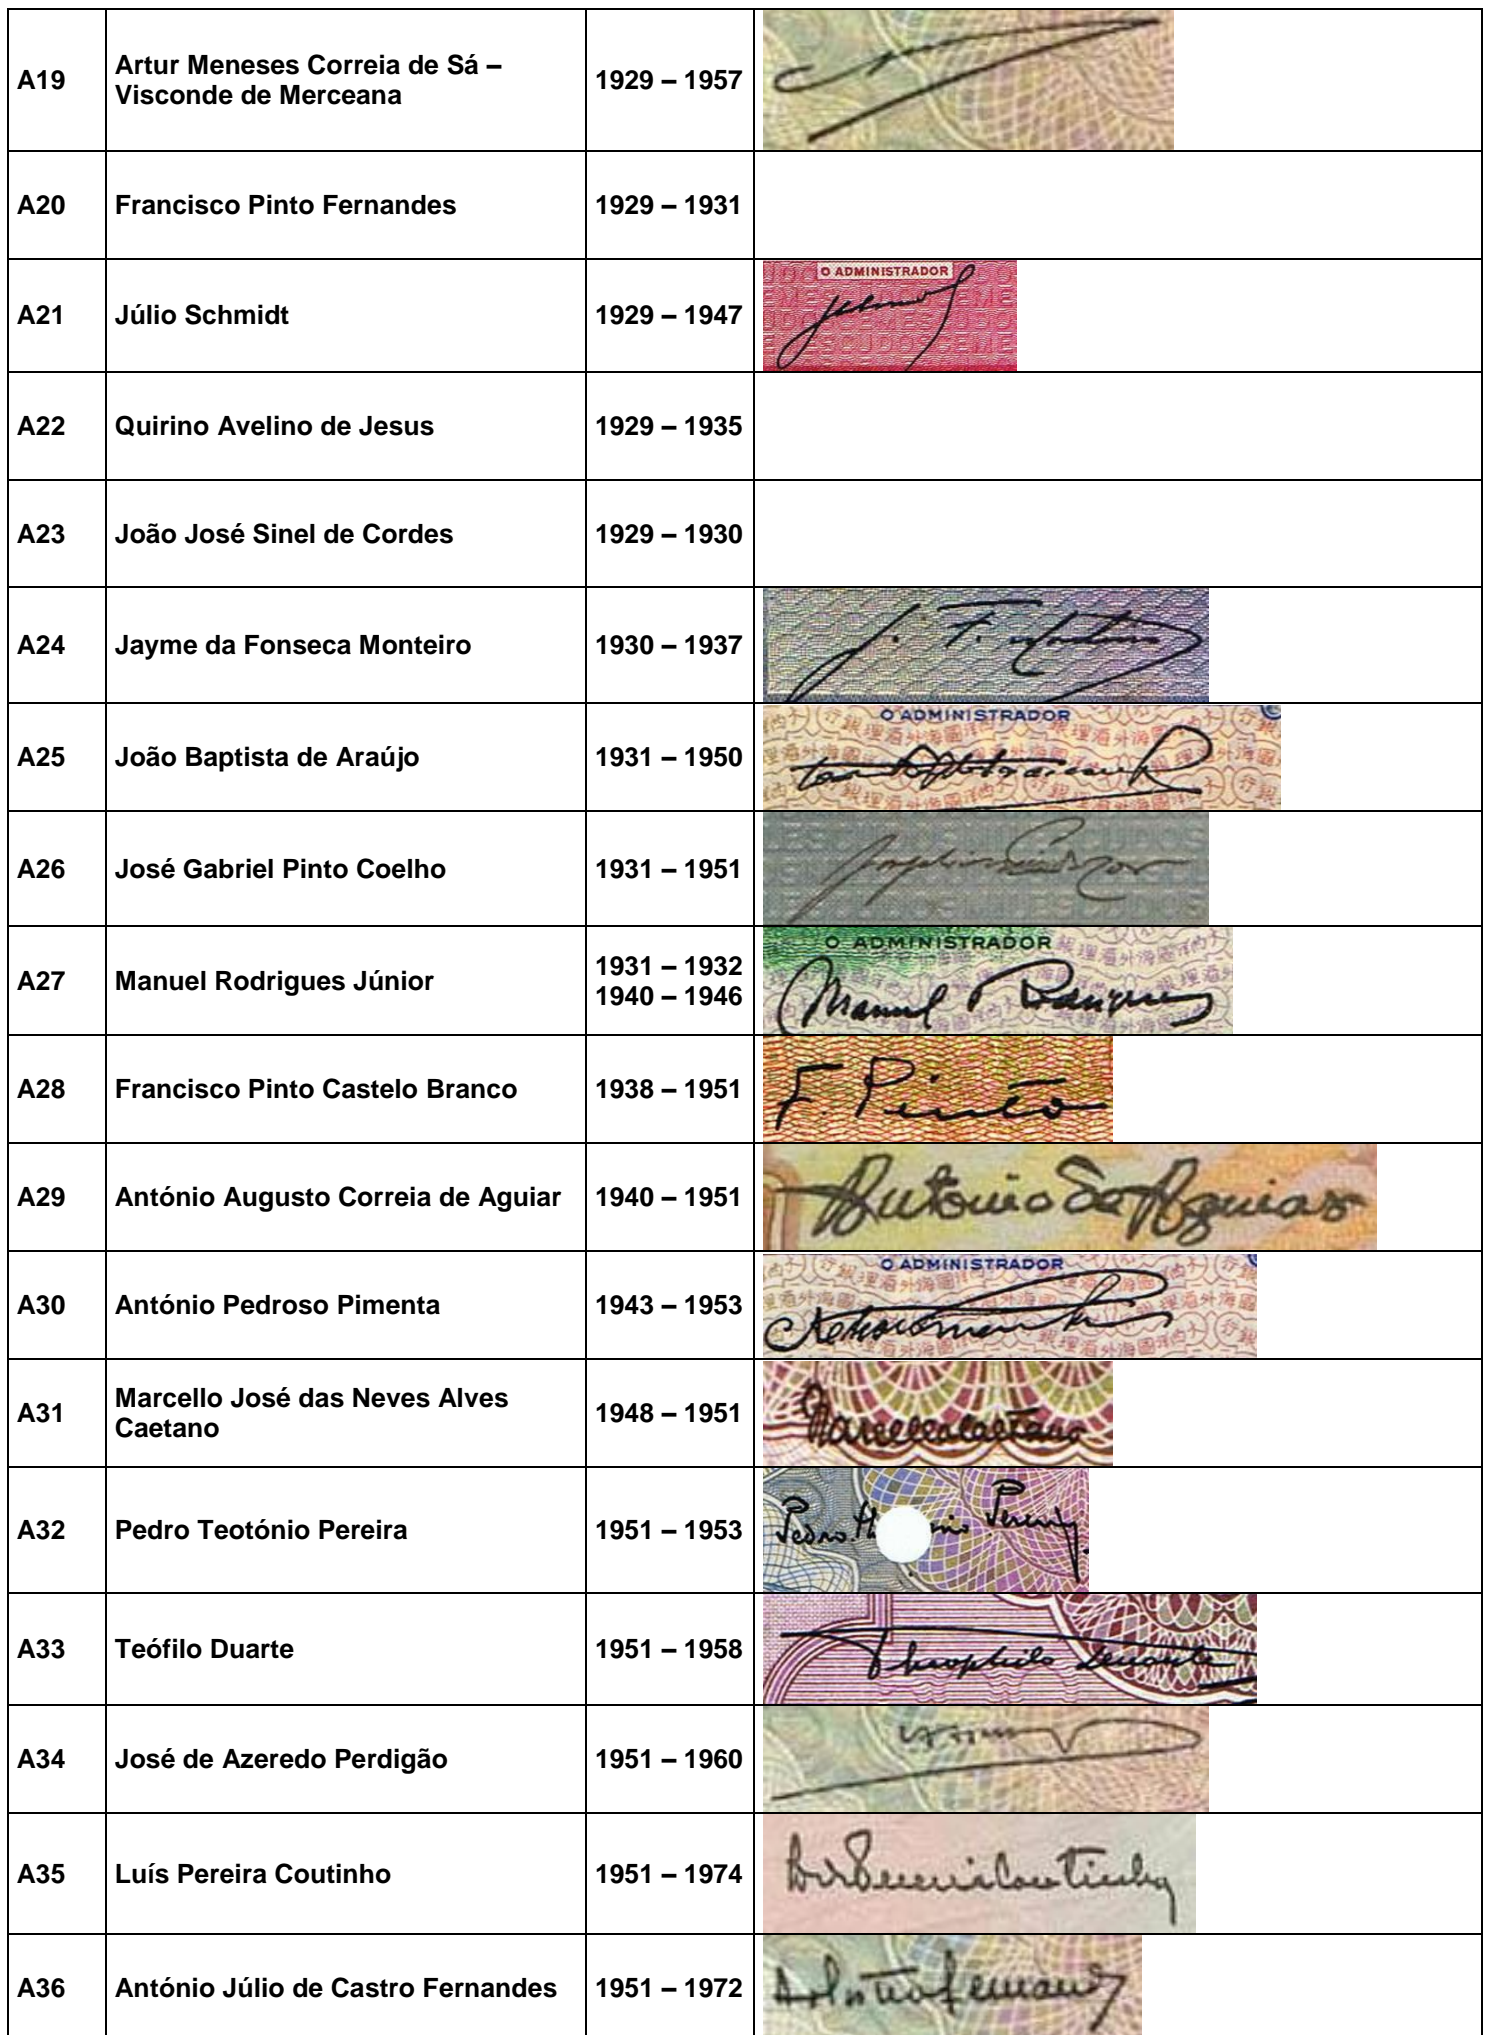 A19
Artur Meneses Correia de Sá –
Visconde de Merceana
1929 – 1957
A20
Francisco Pinto Fernandes
1929 – 1931
A21
Júlio Schmidt
1929 – 1947
O ADMINISTRADOR
A22
Quirino Avelino de Jesus
1929 – 1935
A23
João José Sinel de Cordes
1929 – 1930
A24
Jayme da Fonseca Monteiro
1930 – 1937
A25
João Baptista de Araújo
1931 – 1950
O ADMINISTRADOR
A26
José Gabriel Pinto Coelho
1931 – 1951
A27
Manuel Rodrigues Júnior
1931 – 1932
1940 – 1946
O ADMINISTRADOR
Manuel Rodrigues
A28
Francisco Pinto Castelo Branco
1938 – 1951
F. Pinto
A29
António Augusto Correia de Aguiar
1940 – 1951
Antonio de Aguiar
A30
António Pedroso Pimenta
1943 – 1953
O ADMINISTRADOR
A31
Marcello José das Neves Alves
Caetano
1948 – 1951
Marcello Caetano
A32
Pedro Teotónio Pereira
1951 – 1953
Pedro Pereira
A33
Teófilo Duarte
1951 – 1958
Theophilo Duarte
A34
José de Azeredo Perdigão
1951 – 1960
A35
Luís Pereira Coutinho
1951 – 1974
A36
António Júlio de Castro Fernandes
1951 – 1972